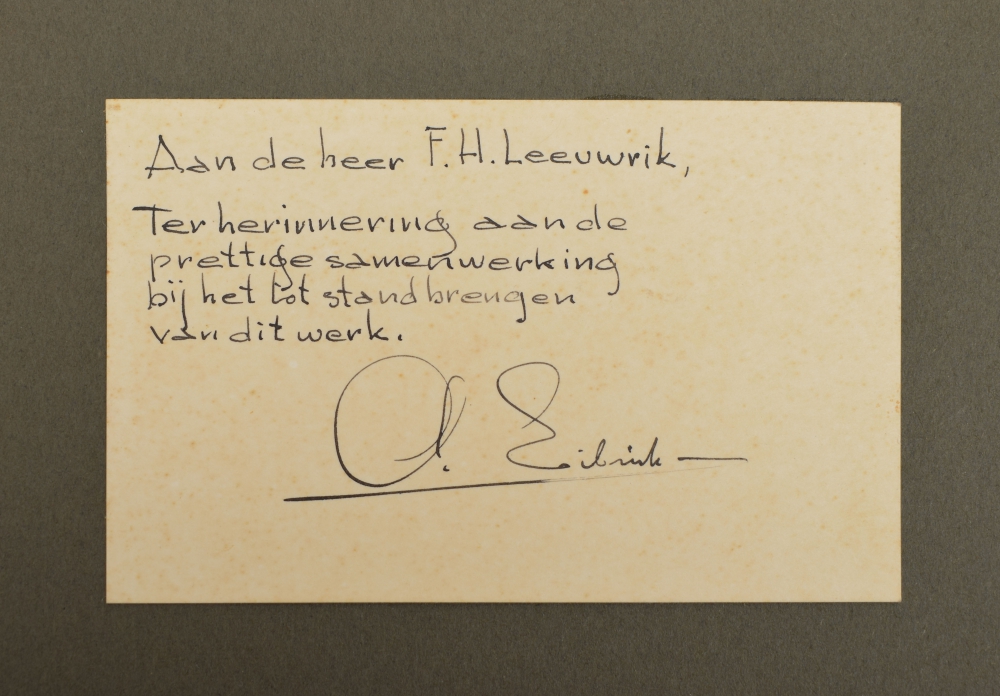 Aan de heer F.H. Leeuwrik,
Ter herinnering aan de
prettige samenwerking
bij het tot stand brengen
van dit werk.
A. Eibrink